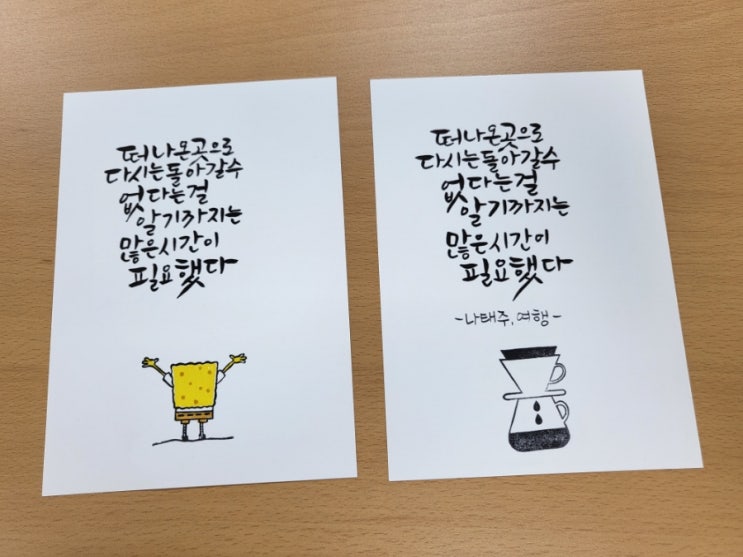 떠나온곳으로
다시는돌아갈수
없다는걸
알기까지는
많은시간이
필요했다
떠나온곳으로
다시는돌아갈수
없다는걸
알기까지는
많은시간이
필요했다
-나태주, 여행-